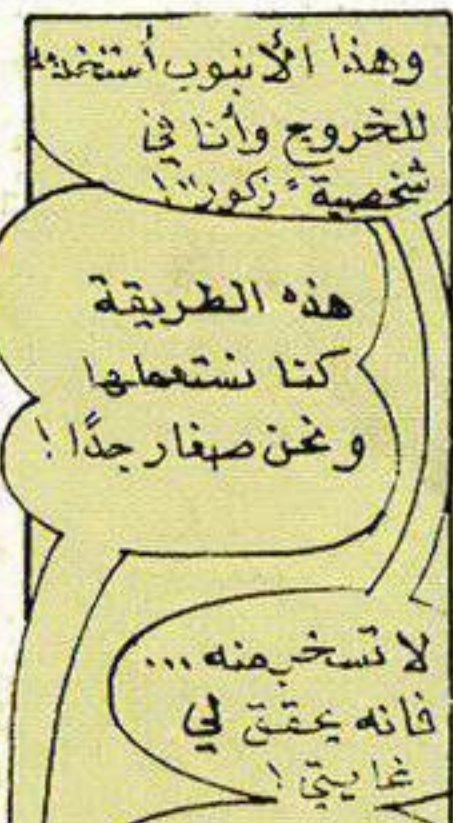 وهذا الأنبوب أستخدمه
للخروج وأنا في
شخصية "زكور"!
هذه الطريقة
كنا نستعملها
ونحن صغار جدًا!
لا تسخر منه...
فانه يحقق لي
غايتي!